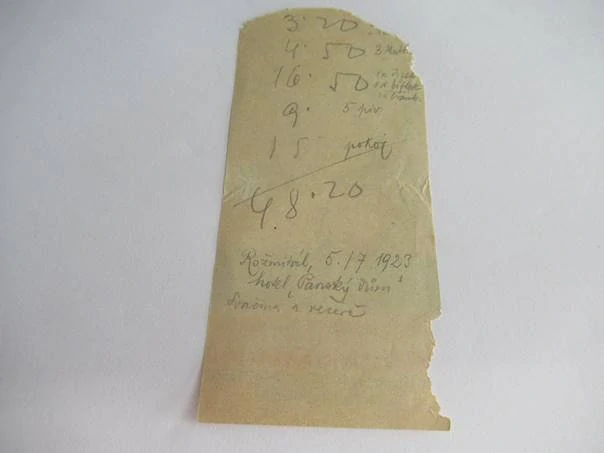 3·20
4·50 3
16·50 1x řízek
1x biftek
9· 5 piv
15 pokoj
48·20
Rožmitál, 5./7. 1923
hotel „Panský dům"
a večeře